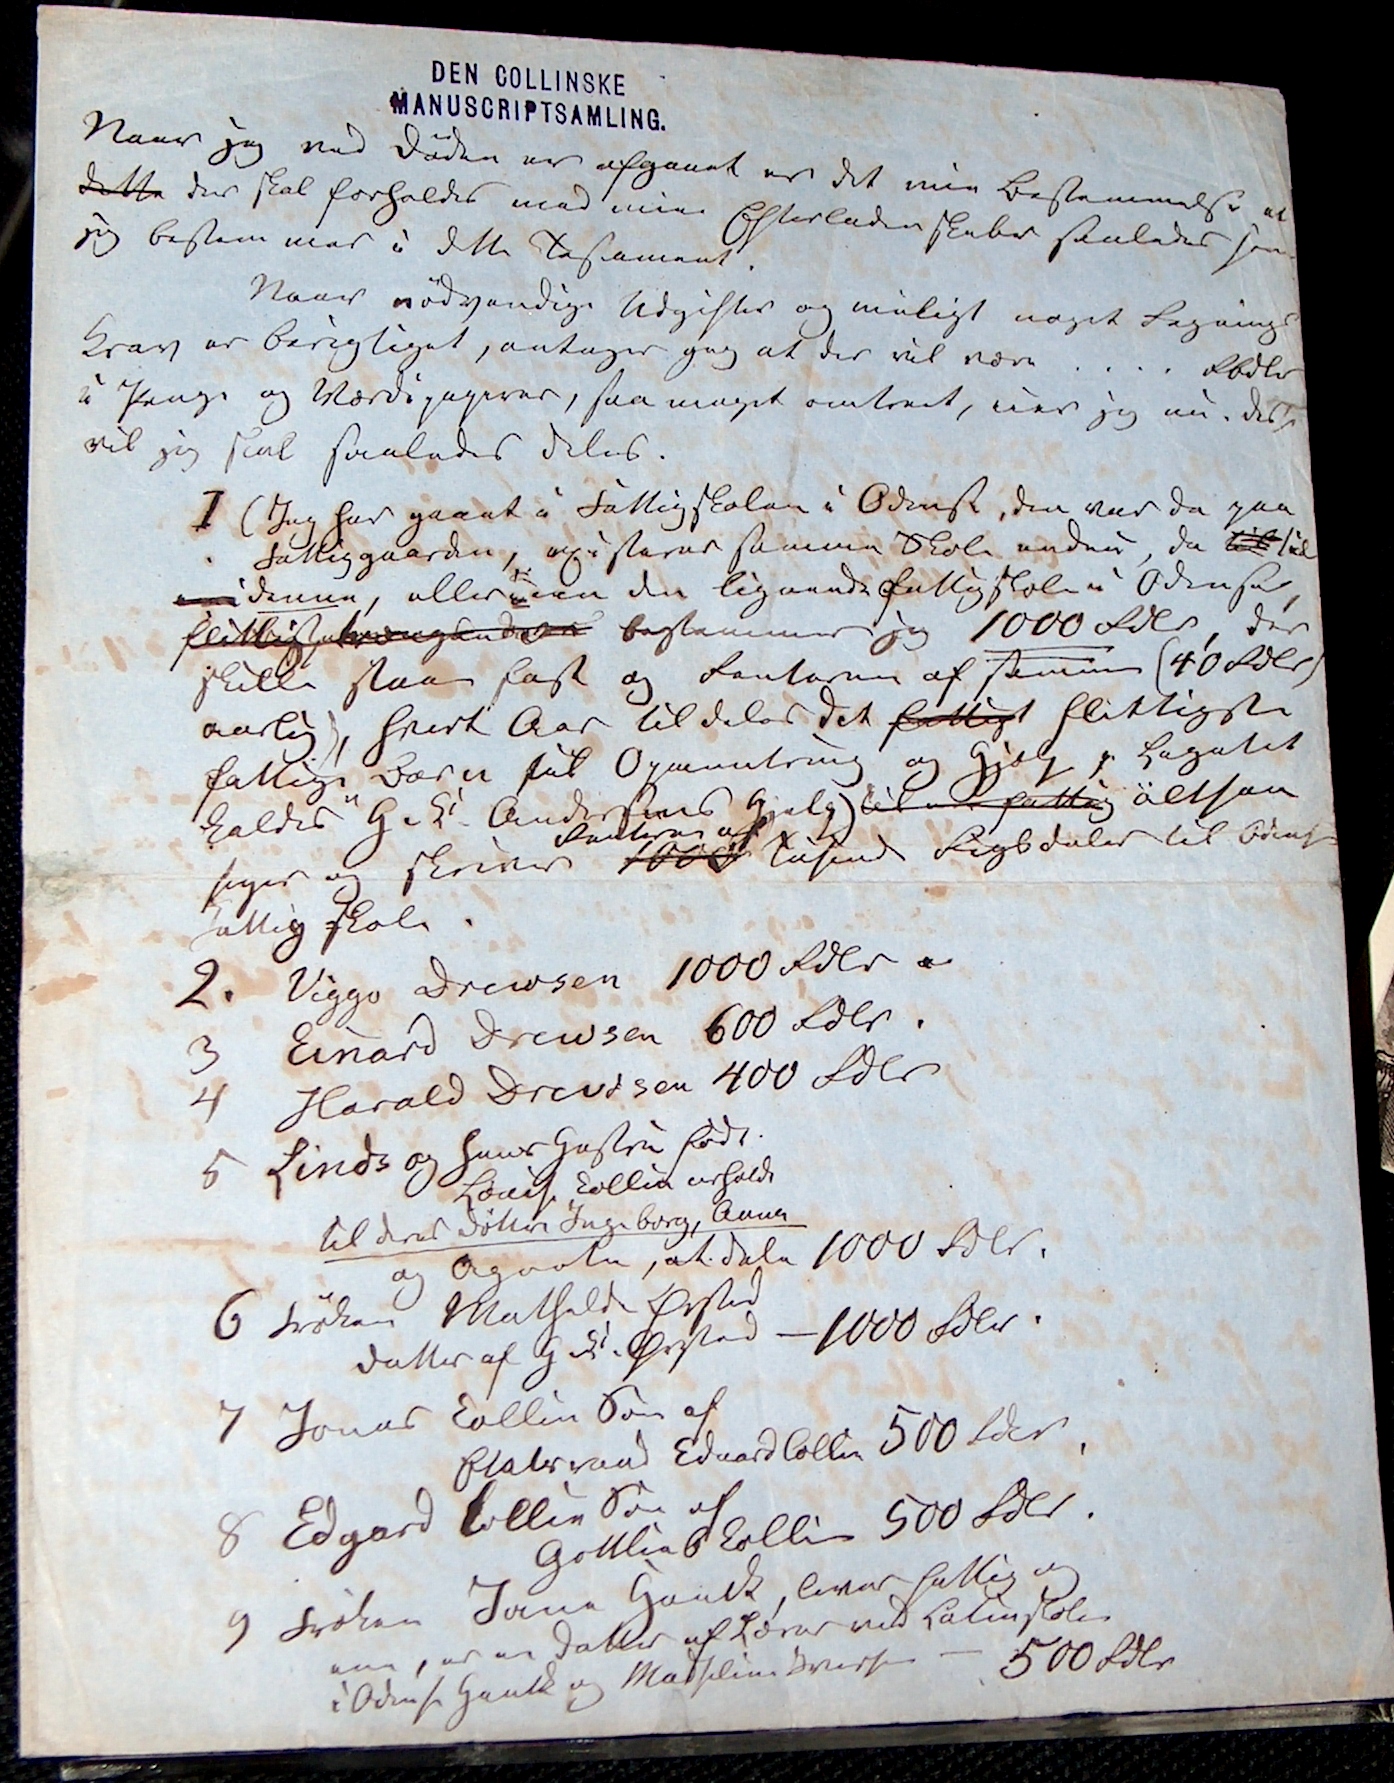 DEN COLLINSKE
MANUSCRIPTSAMLING.
Naar jeg ved Døden er afgaaet er det min Bestemmelse at
dette der skal forholdes med mine Efterladenskaber saaledes som
jeg bestemmer i dette Testament.
Naar nødvendige Udgifter og muligt noget Regnings
Krav er berigtiget, antager jeg at der vil være . . . . Rbdlr
i Penge og Værdipapirer, saa meget omtrent, eier jeg nu. disse
vil jeg skal saaledes deles.
I (Jeg har gaaet i Fattigskolen i Odense, den var da paa
Fattiggaarden, existerer samme Skole endnu, da til
denne, eller en den lignende Fattigskole i Odense,
flittigste bestemmer jeg 1000 Rdlr, der
skulle staae fast og Renterne af samme (40 Rdlr
aarlig), hvert Aar tildeles det fattigt flittigste
fattige Barn til Opmuntring og Hjelp, Legatet
kaldes "H. C. Andersens Hjelp) til fattig altsaa
Renterne af
siger og skriver 1000 Tusinde Rigsdaler til Odense
Fattigskole.
2. Viggo Drewsen 1000 Rdlr
3 Einard Drewsen 600 Rdlr.
4 Harald Drewsen 400 Rdlr
5 Linds og hans Hustru født
Louise Collin erholde
til deres Døttre Ingeborg, Anna
og Agnete, at dele 1000 Rdlr.
6 Frøken Mathilde Ørsted
Datter af H. C. Ørsted — 1000 Rdlr.
7 Jonas Collin Søn af
Etatsraad Edvard Collin 500 Rdlr.
8 Edgard Collin Søn af
Gottlieb Collin 500 Rdlr.
9 Frøken Jane Hanck, lever fattig og
ene, er en Datter af Lærer ved Latinskolen
i Odense Hanck og Iversen — 500 Rdlr